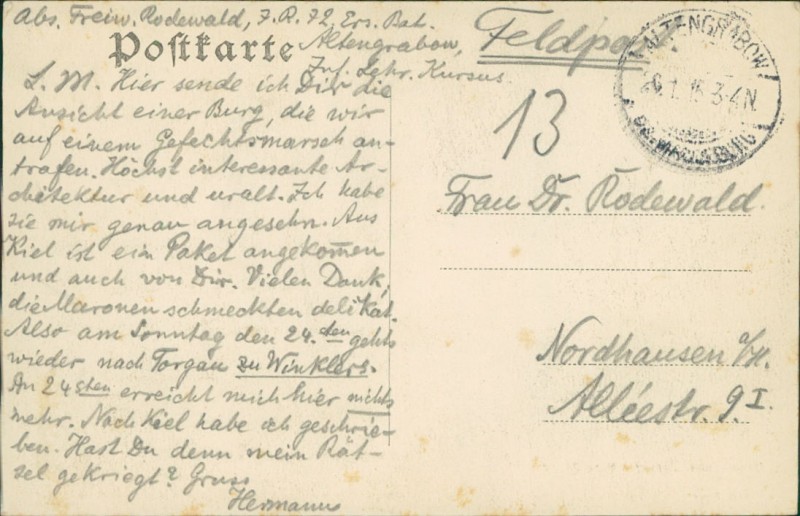 Abs. Freiw. Rodewald, J. R. 72, Ers. Bat.
Altengrabow,
Inf. Lehr. Kursus
Postkarte
Feldpost
L. M. Hier sende ich Dir die
Ansicht einer Burg, die wir
auf einem Gefechtsmarsch an-
trafen. Höchst interessante Ar-
chitektur und uralt. Ich habe
sie mir genau angesehn. Aus
Kiel ist ein Paket angekom̄en
und auch von Dir. Vielen Dank,
die Maronen schmeckten delikat.
Also am Sonntag den 24.ten gehts
wieder nach Torgau zu Winklers.
An 24sten erreicht mich hier nichts
mehr. Nach Kiel habe ich geschrie-
ben. Hast Du denn mein Rät-
sel gekriegt? Gruss
Hermann
ALTENGRABOW
1. 3-4N.
13
Frau Dr. Rodewald.
Nordhausen a/H.
Alléestr. 9 I.